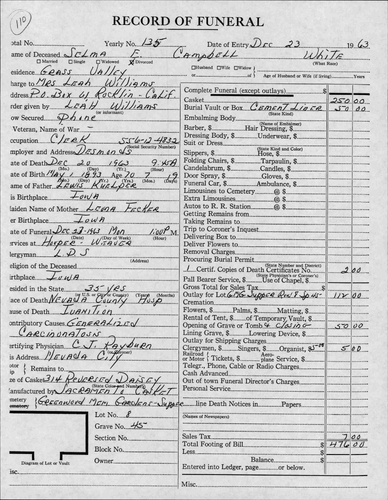 110
RECORD OF FUNERAL
otal No. Yearly No. 135 Date of Entry Dec 23 1963
ame of Deceased Selma E. Campbell White
(What Race)
Married Single Widowed Divorced Husband Wife Widow Age of Husband or Wife (if living) Years
esidence Grass Valley
harge to Mrs Leah Williams
P.O. Box Rocklin - Calif.
rder given by Leah Williams
ow Secured Phone
Veteran, Name of War -
(Social Security Number)
ccupation Clerk 556-12-4832
mployer and Address Desmonds
ate of Death Dec 20 1963 9:45A
ate of Birth May 1 1893 Age 70 7 19
ame of Father Lewis Kuelper
is Birthplace Iowa
aiden Name of Mother Lena Fecker
er Birthplace Iowa
ate of Funeral Dec 23-1963 Mon 1:00PM
ervices at Hooper-Weaver
lergyman LDS
eligion of the Deceased
irthplace Iowa
esided in the State 35 yrs
(In U.S., City or County)
lace of Death Nevada County Hosp
ause of Death Inanition
ontributory Causes Generalized
Carcinomatosis
ertifying Physician C.J. Rayburn
is Address Nevada City
Remains to
ize of Casket 314 Reversed Daisey
anufactured by Sacramento Casket
metery Greenwood Mem. Gardens
Lot No. 8
Grave No. 45
Section No.
Block No.
Owner
Diagram of Lot or Vault
Misc.
Complete Funeral (except outlays) $
Casket 250 00
Burial Vault or Box Cement Liner 50 00
(State Kind)
Embalming Body
Barber, $ Hair Dressing, $
Dressing Body, $ Underwear, $
Suit or Dress
(State Kind and Color)
Slippers, $ Hose, $
Folding Chairs, $ Tarpaulin, $
Candelabrum, $ Candles, $
Door Spray, $ Gloves, $
Funeral Car, $ Ambulance, $
Limousines to Cemetery @ $
Extra Limousines @ $
Autos to R. R. Station @ $
Getting Remains from
Taking Remains to
Trip to Coroner's Inquest
Delivering Box to
Deliver Flowers to
Removal Charges
Procuring Burial Permit
(State Number and District)
1 Certif. Copies of Death Certificate No. 2 00
(State Physician's or Coroner's)
Pall Bearer Service, $ Use of Chapel, $
Gross Total for Sales Tax $
Outlay for Lot 112 00
Cremation
Flowers, $ Palms, $ Matting, $
Rental of Tent, $ of Temporary Vault, $
Opening of Grave or Tomb & Closing 50 00
Lining Grave, $ Lowering Device, $
Outlay for Shipping Charges
Clergymen, $ Singers, $ Organist, $5.00 5 00
Tickets, $ Aeroplane Service, $
Telegr., Phone, Cable or Radio Charges
Cash Advanced
Out of town Funeral Director's Charges
Personal Service
line Death Notices in Papers
(Names of Newspapers)
Sales Tax 7 00
Total Footing of Bill $ 476 00
Less $
Balance $
Entered into Ledger, page or below.
Misc.